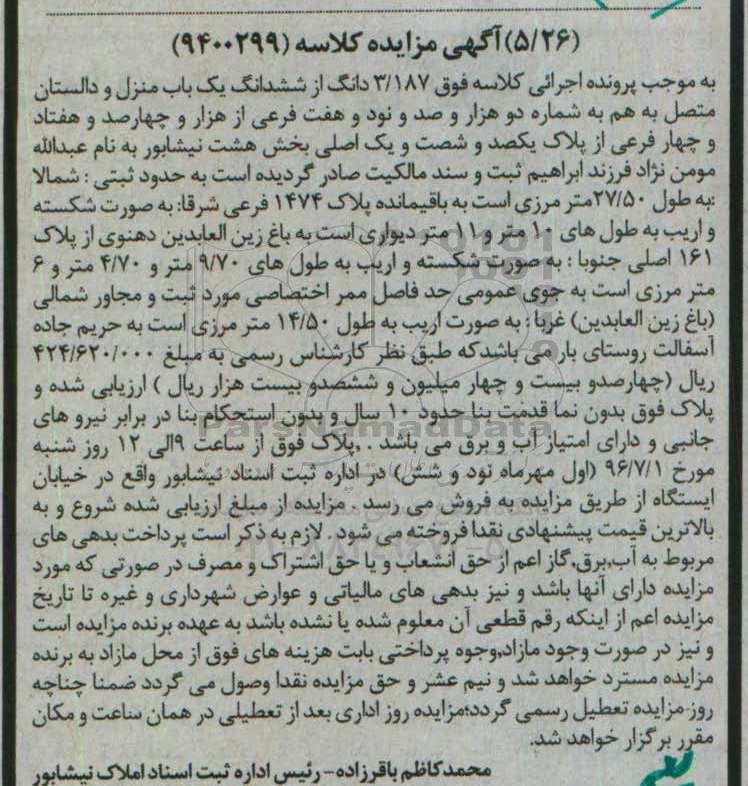 (۵/۲۶)آگهی مزایده کلاسه (۹۴۰۰۲۹۹)
به موجب پرونده اجرائی کلاسه فوق ۳/۱۸۷ دانگ از ششدانگ یک باب منزل و دالستان
متصل به هم به شماره دو هزار و صد و نود و هفت فرعی از هزار و چهارصد و هفتاد
و چهار فرعی از پلاک یکصد و شصت و یک اصلی بخش هشت نیشابور به نام عبدالله
مومن نژاد فرزند ابراهیم ثبت و سند مالکیت صادر گردیده است به حدود ثبتی : شمالا
:به طول ۲۷/۵۰متر مرزی است به باقیمانده پلاک ۱۴۷۴ فرعی شرقا: به صورت شکسته
و اریب به طول های ۱۰ متر و ۱۱ متر دیواری است به باغ زین العابدین دهنوی از پلاک
۱۶۱ اصلی جنوبا : به صورت شکسته و اریب به طول های ۹/۷۰ متر و ۴/۷۰ متر و ۶
متر مرزی است به جوی عمومی حد فاصل ممر اختصاصی مورد ثبت و مجاور شمالی
(باغ زین العابدین) غربا : به صورت اریب به طول ۱۴/۵۰ متر مرزی است به حریم جاده
آسفالت روستای بار می باشدکه طبق نظر کارشناس رسمی به مبلغ ۴۲۴/۶۲۰/۰۰۰
ریال (چهارصدو بیست و چهار میلیون و ششصدو بیست هزار ریال ) ارزیابی شده و
پلاک فوق بدون نما قدمت بنا حدود ۱۰ سال و بدون استحکام بنا در برابر نیرو های
جانبی و دارای امتیاز آب و برق می باشد . .پلاک فوق از ساعت ۹الی ۱۲ روز شنبه
مورخ ۹۶/۷/۱ (اول مهرماه نود و شش) در اداره ثبت اسناد نیشابور واقع در خیابان
ایستگاه از طریق مزایده به فروش می رسد . مزایده از مبلغ ارزیابی شده شروع و به
بالاترین قیمت پیشنهادی نقدا فروخته می شود . لازم به ذکر است پرداخت بدهی های
مربوط به آب,برق,گاز اعم از حق انشعاب و یا حق اشتراک و مصرف در صورتی که مورد
مزایده دارای آنها باشد و نیز بدهی های مالیاتی و عوارض شهرداری و غیره تا تاریخ
مزایده اعم از اینکه رقم قطعی آن معلوم شده یا نشده باشد به عهده برنده مزایده است
و نیز در صورت وجود مازاد,وجوه پرداختی بابت هزینه های فوق از محل مازاد به برنده
مزایده مسترد خواهد شد و نیم عشر و حق مزایده نقدا وصول می گردد ضمنا چناچه
روز مزایده تعطیل رسمی گردد؛مزایده روز اداری بعد از تعطیلی در همان ساعت و مکان
مقرر برگزار خواهد شد.
محمدکاظم باقرزاده- رئیس اداره ثبت اسناد املاک نیشابور
ParsNamadData